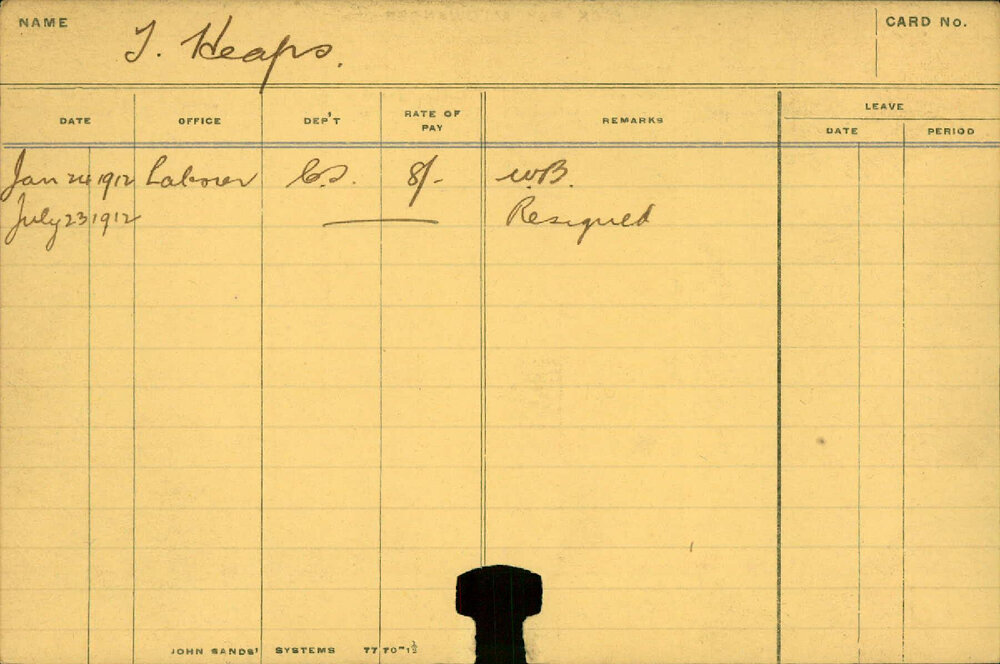 NAME T. Heaps. CARD No.
DATE OFFICE DEP'T RATE OF PAY REMARKS LEAVE
DATE PERIOD
Jan 24 1912 Laborer C.S. 8/- W.B.
July 23 1912 —— Resigned
JOHN SANDS' SYSTEMS 7770"1½